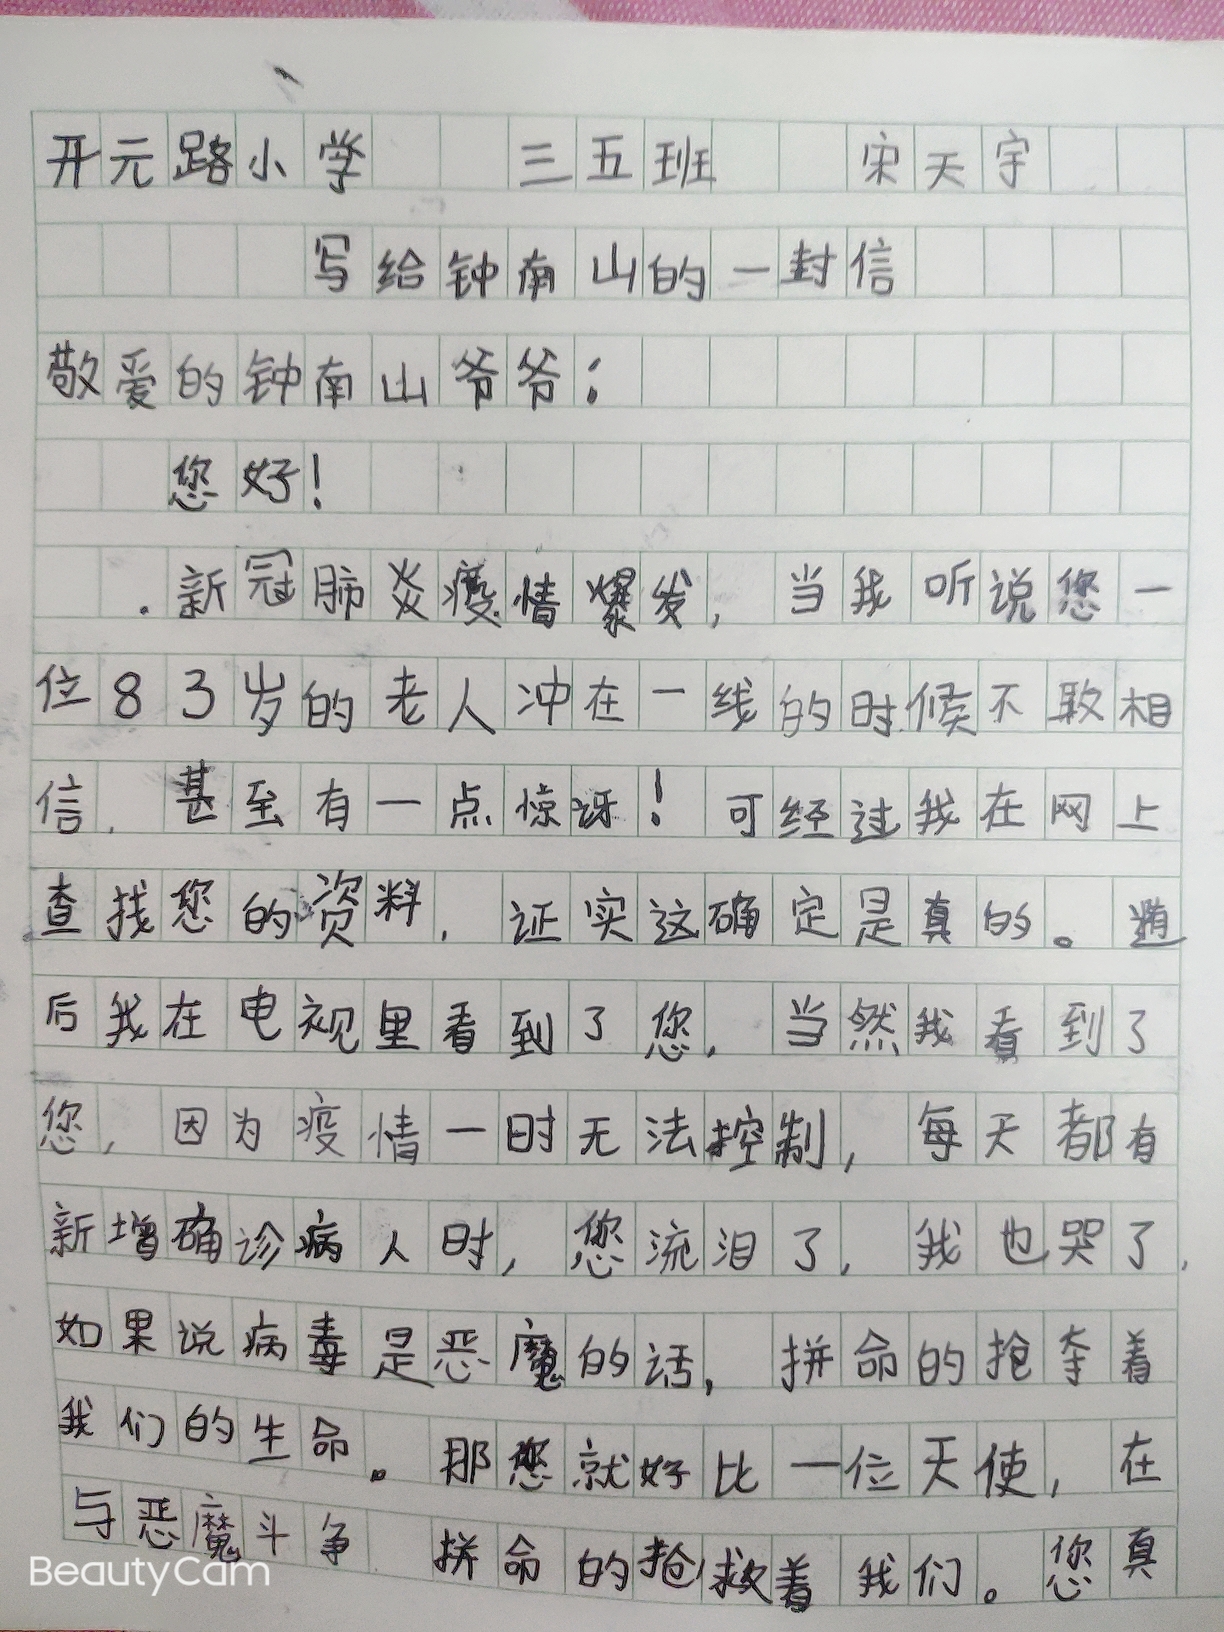 开元路小学 三五班 宋天宇
写给钟南山的一封信
敬爱的钟南山爷爷：
您好！
新冠肺炎疫情爆发，当我听说您一
位83岁的老人冲在一线的时候不敢相
信，甚至有一点惊讶！可经过我在网上
查找您的资料，证实这确定是真的。随
后我在电视里看到了您，当然我看到了
您，因为疫情一时无法控制，每天都有
新增确诊病人时，您流泪了，我也哭了，
如果说病毒是恶魔的话，拼命的抢夺着
我们的生命。那您就好比一位天使，在
与恶魔斗争 拼命的抢救着我们。您真
BeautyCam